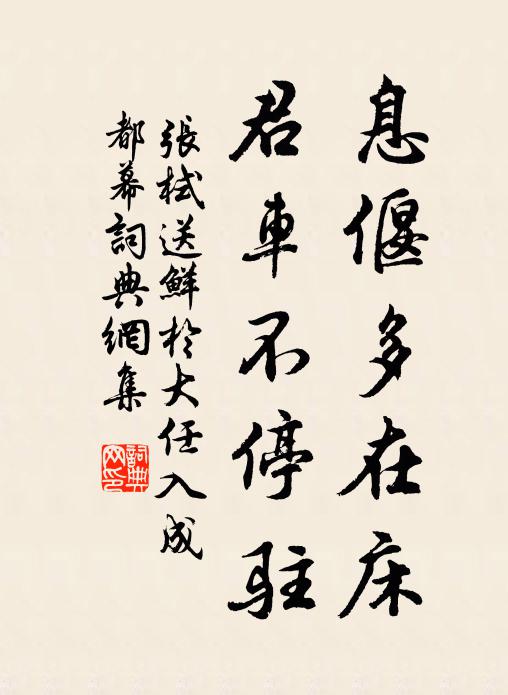 息偃多在床
君車不停駐
張栻送鮮於大任入成
都幕詞典網集
詞典
网印